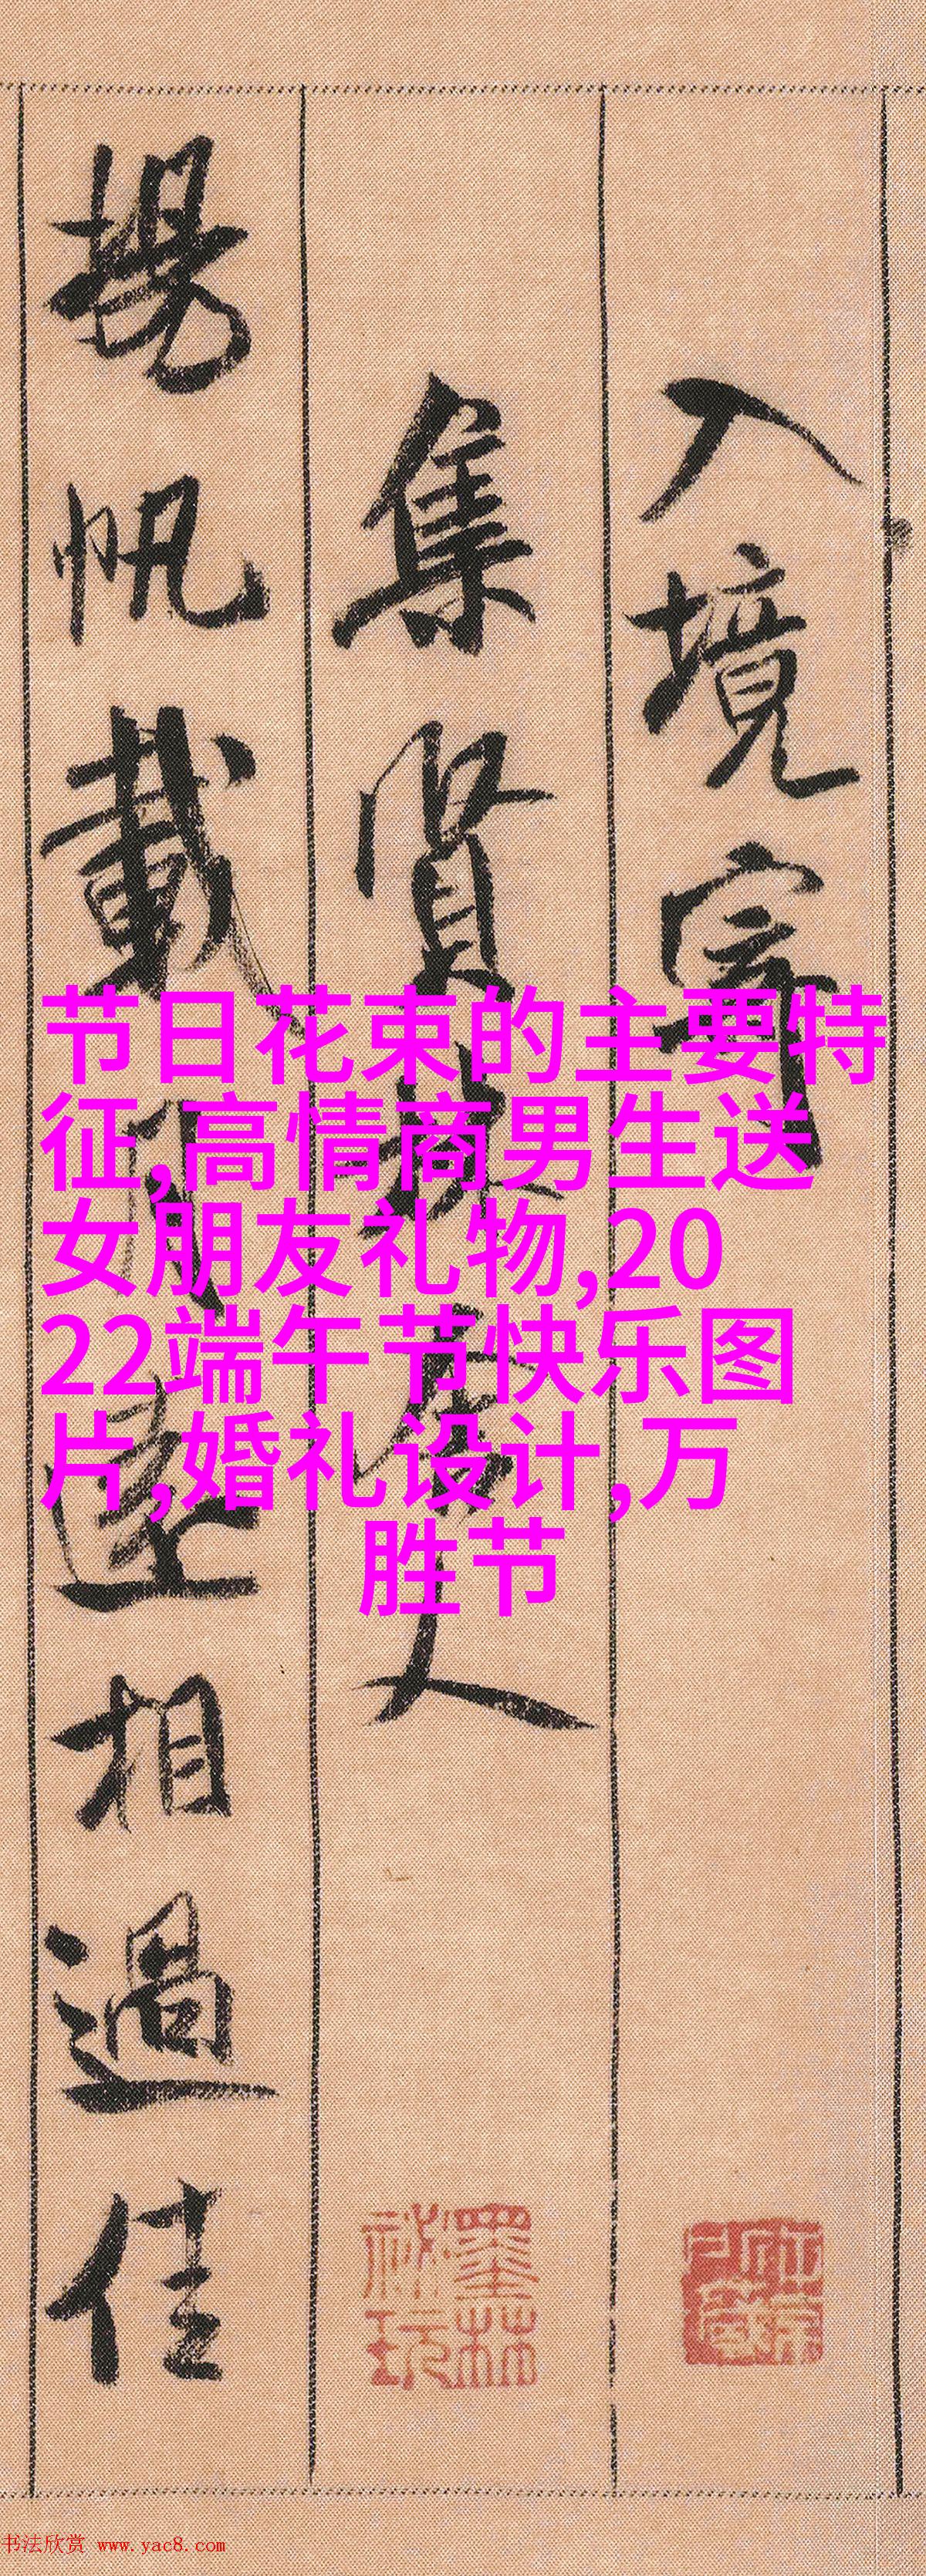 入境寄
集賢林舍人
揚帆載月遠相過佳
节日花束的主要特
征,高情商男生送
女朋友礼物,20
22端午节快乐图
片,婚礼设计,万
胜节
墨林
秘玩
书法欣赏 www.yac8.com